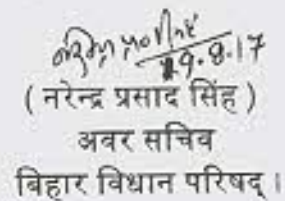 19.9.17
( नरेन्द्र प्रसाद सिंह )
अवर सचिव
बिहार विधान परिषद् ।